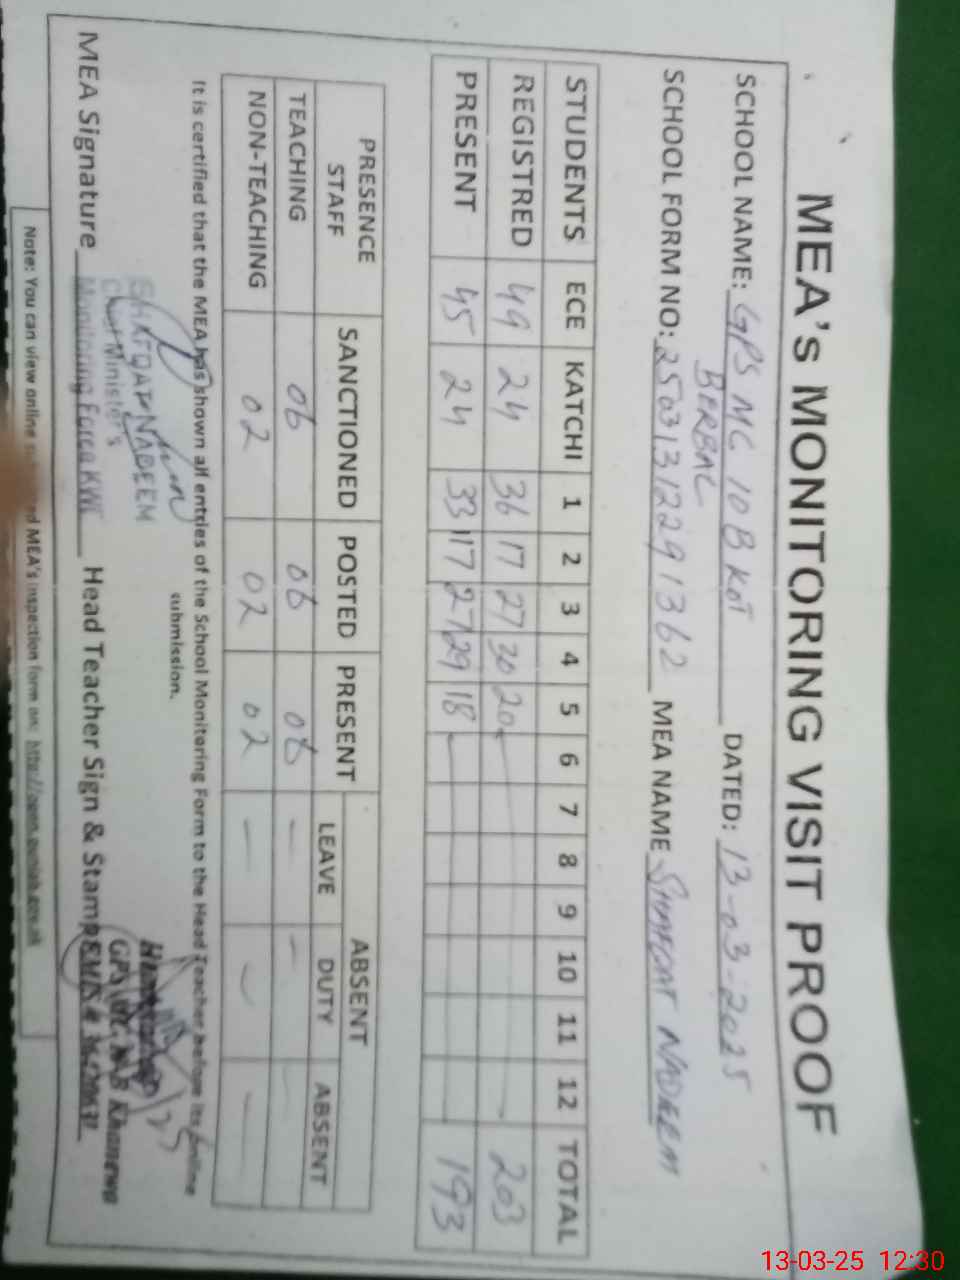 MEA's MONITORING VISIT PROOF
SCHOOL NAME: GPS MC 10B KOT DATED: 13-03-2025
BERBAL
SCHOOL FORM NO: 25031312291362 MEA NAME SHAFQAT NADEEM
STUDENTS ECE KATCHI 1 2 3 4 5 6 7 8 9 10 11 12 TOTAL
REGISTRED 49 24 36 17 27 30 20 203
PRESENT 45 24 33 17 27 29 18 193
PRESENCE STAFF SANCTIONED POSTED PRESENT ABSENT
LEAVE DUTY ABSENT
TEACHING 06 06 06 — —
NON-TEACHING 02 02 02 — — —
It is certified that the MEA has shown all entries of the School Monitoring Form to the Head Teacher before its online
submission.
SHAFQAT NADEEM
Chief Minister's
Monitoring Force KWL
MEA Signature Head Teacher Sign & Stamp
GPS MC
Note: You can view online submitted MEA's inspection form on:
13-03-25 12:30